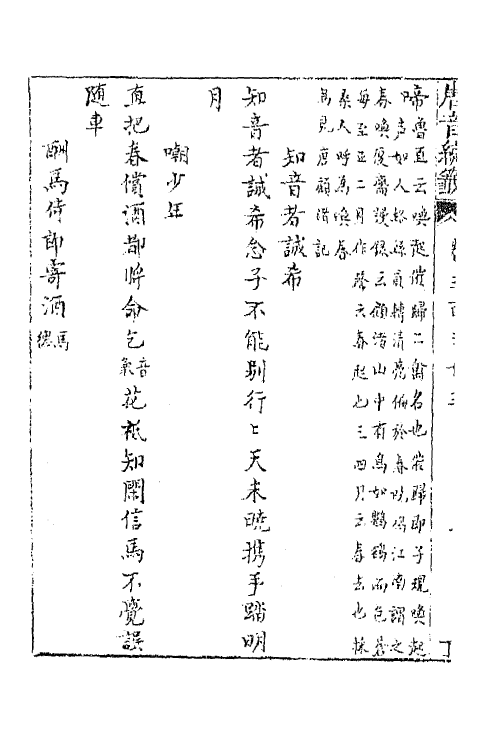 唐音統籤
啼魯直云喚起催歸二禽名也催歸即子規喚起
聲如人絡絲圓轉清亮偏於春曉鳴江南謂之
春喚復齋謾錄云顧渚山中有鳥如鸜鵒而色蒼
每至正二月作聲云春起也三四月云春去也採
茶人呼為喚春
鳥見唐顧渚記
知音者誠希
知音者誠希念子不能別行〻天未曉携手踏明
月
嘲少年
直把春償酒都將命乞音氣花衹知閑信馬不覺誤
隨車
酬馬侍郎寄酒馬總